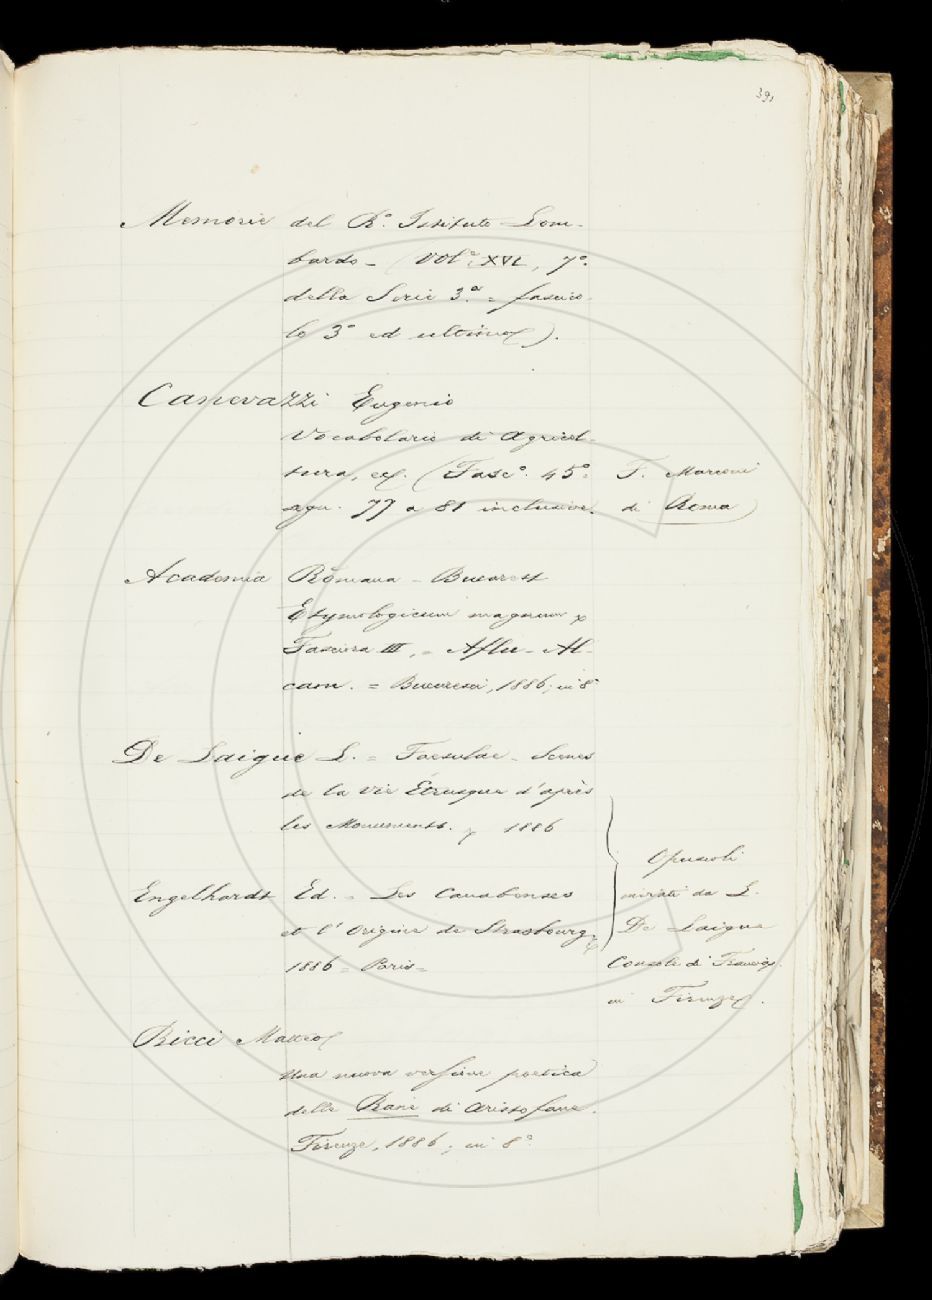 391
Memorie del R.° Istituto Lom-
bardo - (Vol.° XVI, 7°.
della Serie 3.ª = fascico-
lo 3° ed ultimo).
Canevazzi Eugenio
Vocabolario di Agricol-
tura, (Fasc°. 45° = F. Marconi
77 a 81 inclusive. di Roma
Academia Romana - Bucarest
Etymologicum magnum
Fasciora III, = Aflu - Al-
cam. = Bucuresci, 1886, in 8°
De Laigue L. = Faesulae - Scenes
de la vie Étrusque d'après
les Monuments. 1886
Opuscoli
Engelhardt Ed. = Les Canabenses
da L.
et l'Origine de Strasbourg
De Laigue
1886 = Paris =
Console di Francia
in Firenze.
Ricci Matteo
Una nuova versione poetica
delle Rane di Aristofane.
Firenze, 1886; in 8°